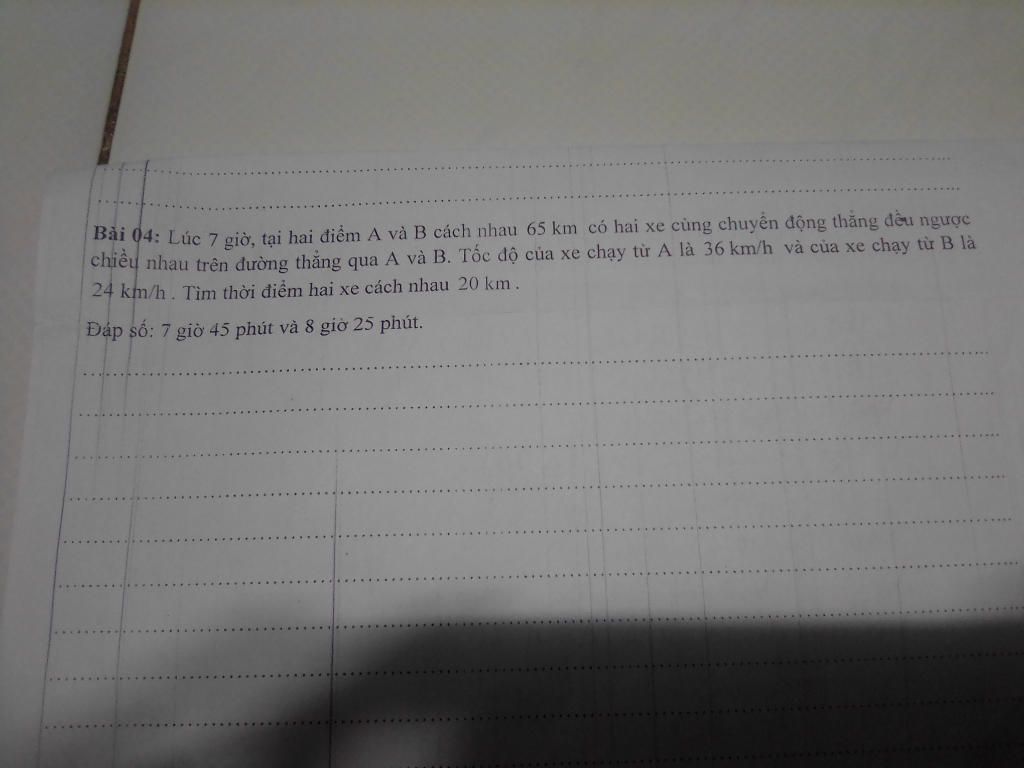 Bài 04: Lúc 7 giờ, tại hai điểm A và B cách nhau 65 km có hai xe cùng chuyển động thẳng đều ngược
chiều nhau trên đường thẳng qua A và B. Tốc độ của xe chạy từ A là 36 km/h và của xe chạy từ B là
24 km/h . Tìm thời điểm hai xe cách nhau 20 km .
Đáp số: 7 giờ 45 phút và 8 giờ 25 phút.